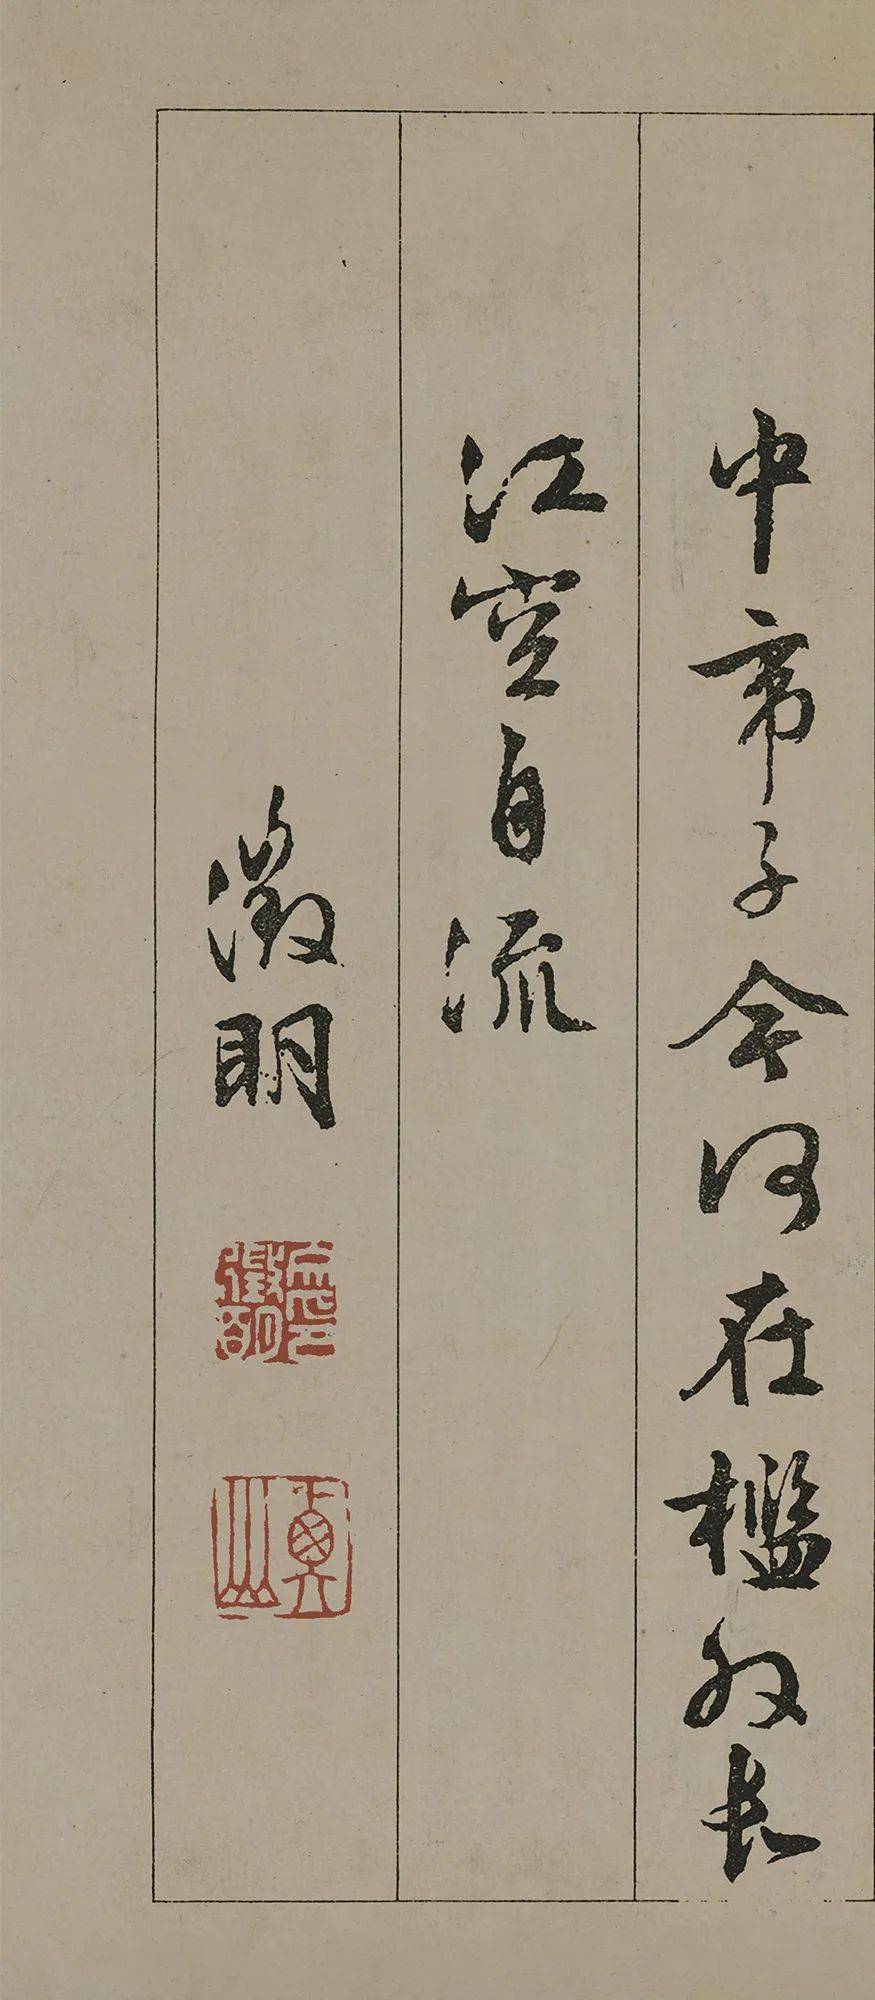 中帝子今何在檻外長
江空自流
徵明